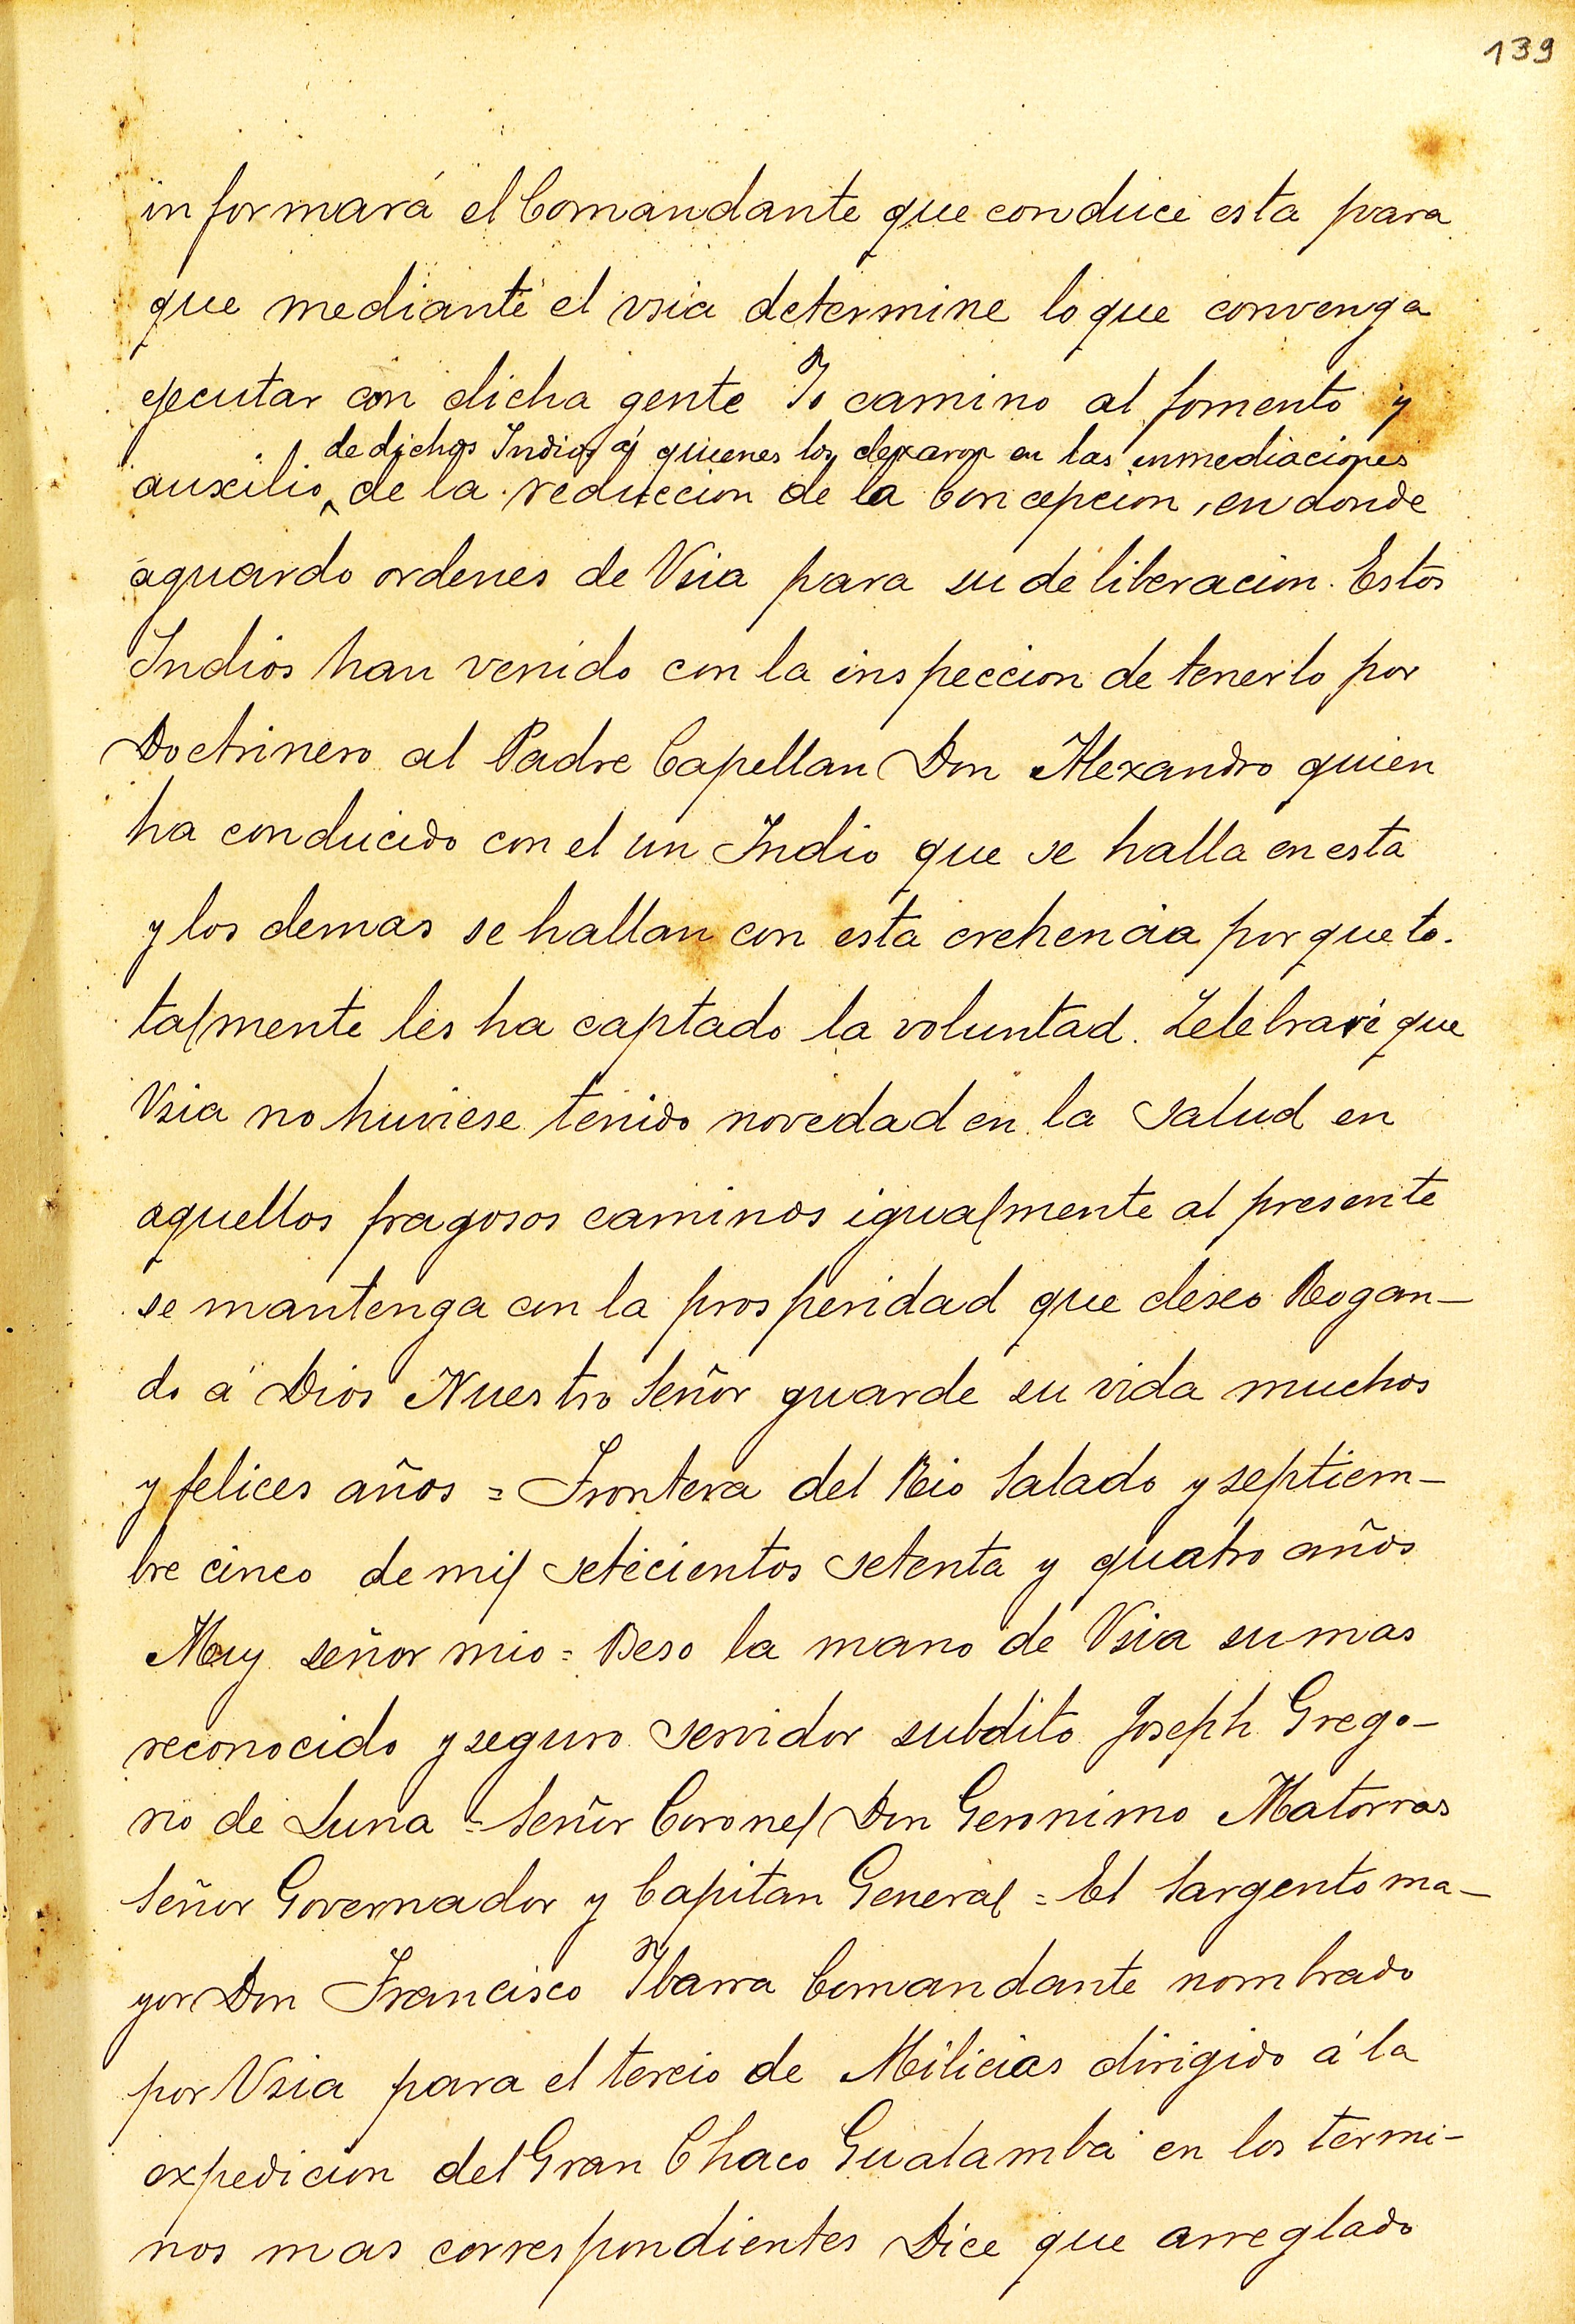 139
informará el Comandante que conduce esta para
que mediante el vsia determine lo que convenga
ejecutar con dicha gente Yo camino al fomento y
de dichos Indios á quienes los dexaron en las inmediaciones
auxilio ^ de la reduccion de la Concepcion, en donde
aguardo ordenes de Vsia para su deliberacion. Estos
Indios han venido con la inspeccion de tenerlo por
Doctrinero al Padre Capellan Don Alexandro quien
ha conducido con el un Indio que se halla en esta
y los demas se hallan con esta crehencia porque to-
talmente les ha captado la voluntad. Zelebraré que
Vsia no huviese tenido novedad en la salud en
aquellos fragosos caminos igualmente al presente
se mantenga con la prosperidad que deseo Rogan-
do á Dios Nuestro Señor guarde su vida muchos
y felices años = Frontera del Rio Salado y septiem-
bre cinco de mil setecientos setenta y quatro años
Muy señor mio = Beso la mano de Vsia su mas
reconocido y seguro servidor subdito Joseph Grego-
rio de Luna = Señor Coronel Don Geronimo Matorras
Señor Governador y Capitan General = El Sargento ma-
yor Don Francisco Ybarra Comandante nombrado
por Vsia para el tercio de Milicias dirigido á la
expedicion del Gran Chaco Gualamba en los termi-
nos mas correspondientes Dice que arreglado